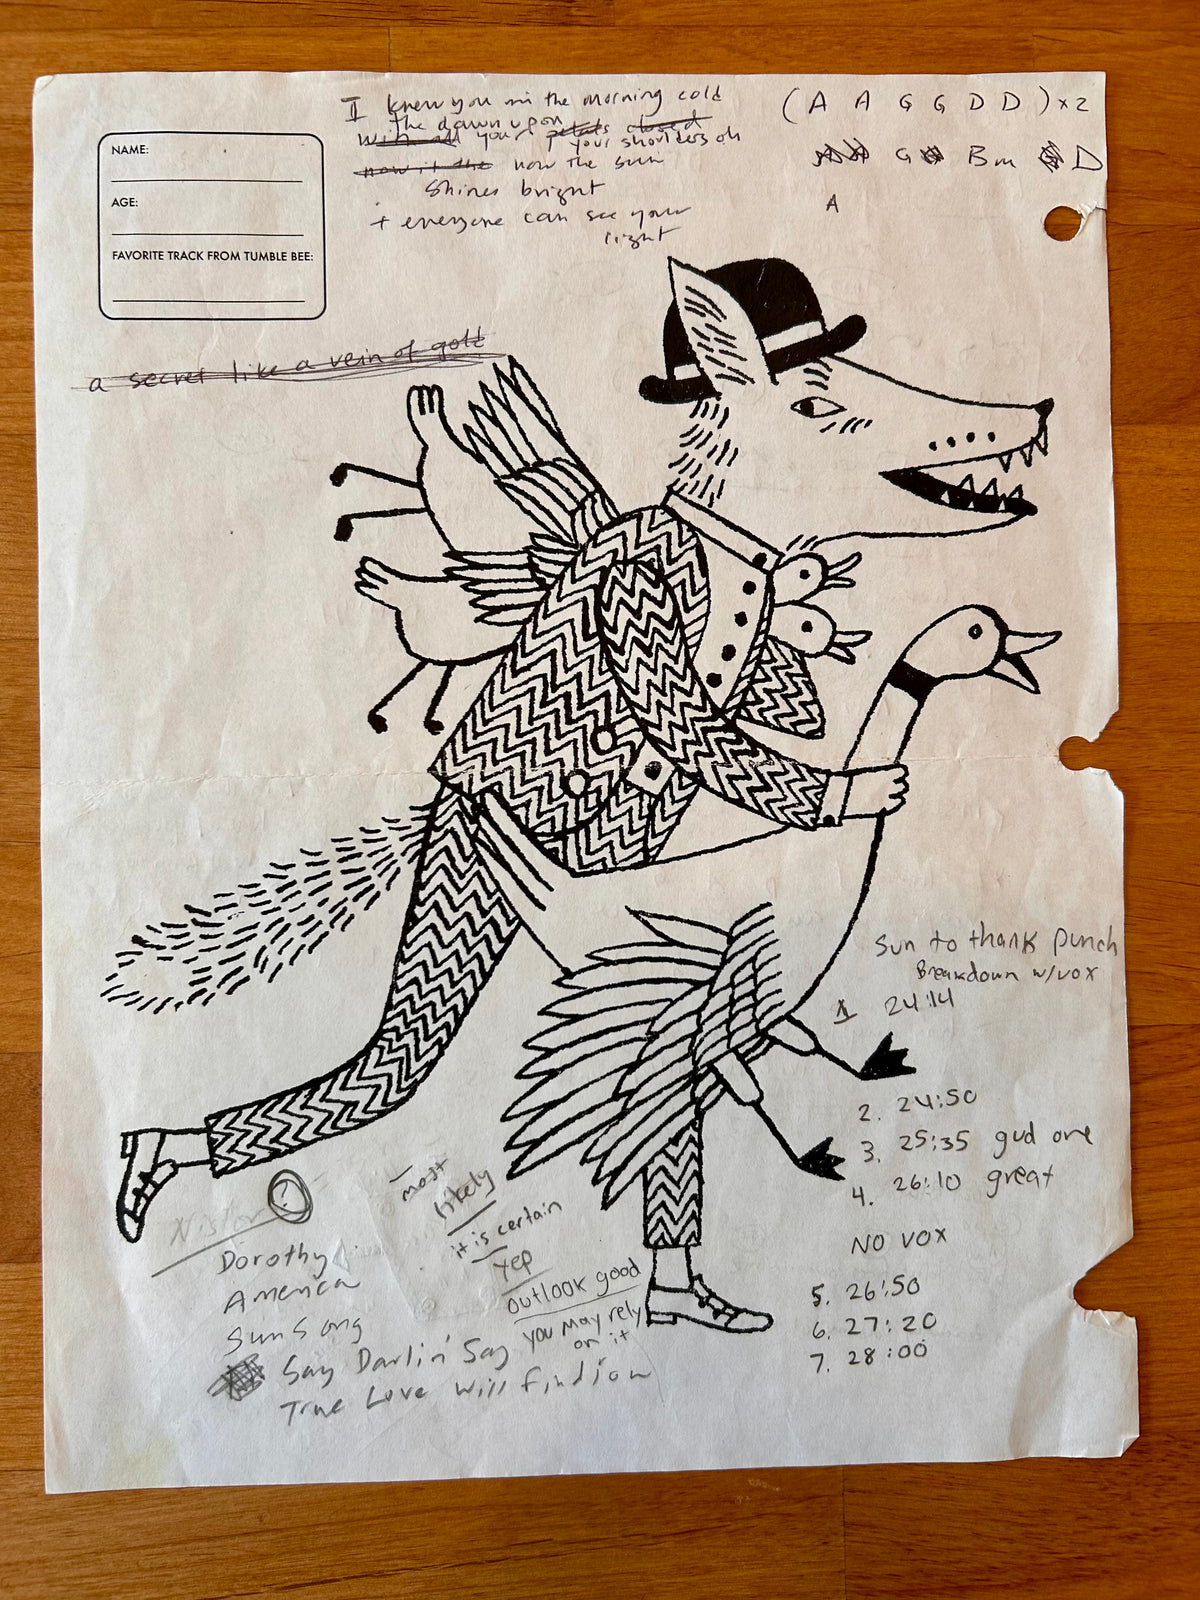 I knew you in the morning cold
the dawn upon
with all your petals closed
your shoulders oh
now it the now the sun
shines bright
+ everyone can see your
light
(A A G G D D) x 2
G Bm D
A
NAME:
AGE:
FAVORITE TRACK FROM TUMBLE BEE:
a secret like a vein of gold
Sun to thank punch
Breakdown w/vox
1 24:14
2. 24:50
3. 25:35 gud one
4. 26:10 great
NO VOX
5. 26:50
6. 27:20
7. 28:00
most
likely
it is certain
yep
outlook good
you may rely
on it
?
Dorothy
America
Sun Song
Say Darlin' Say
True Love Will Find